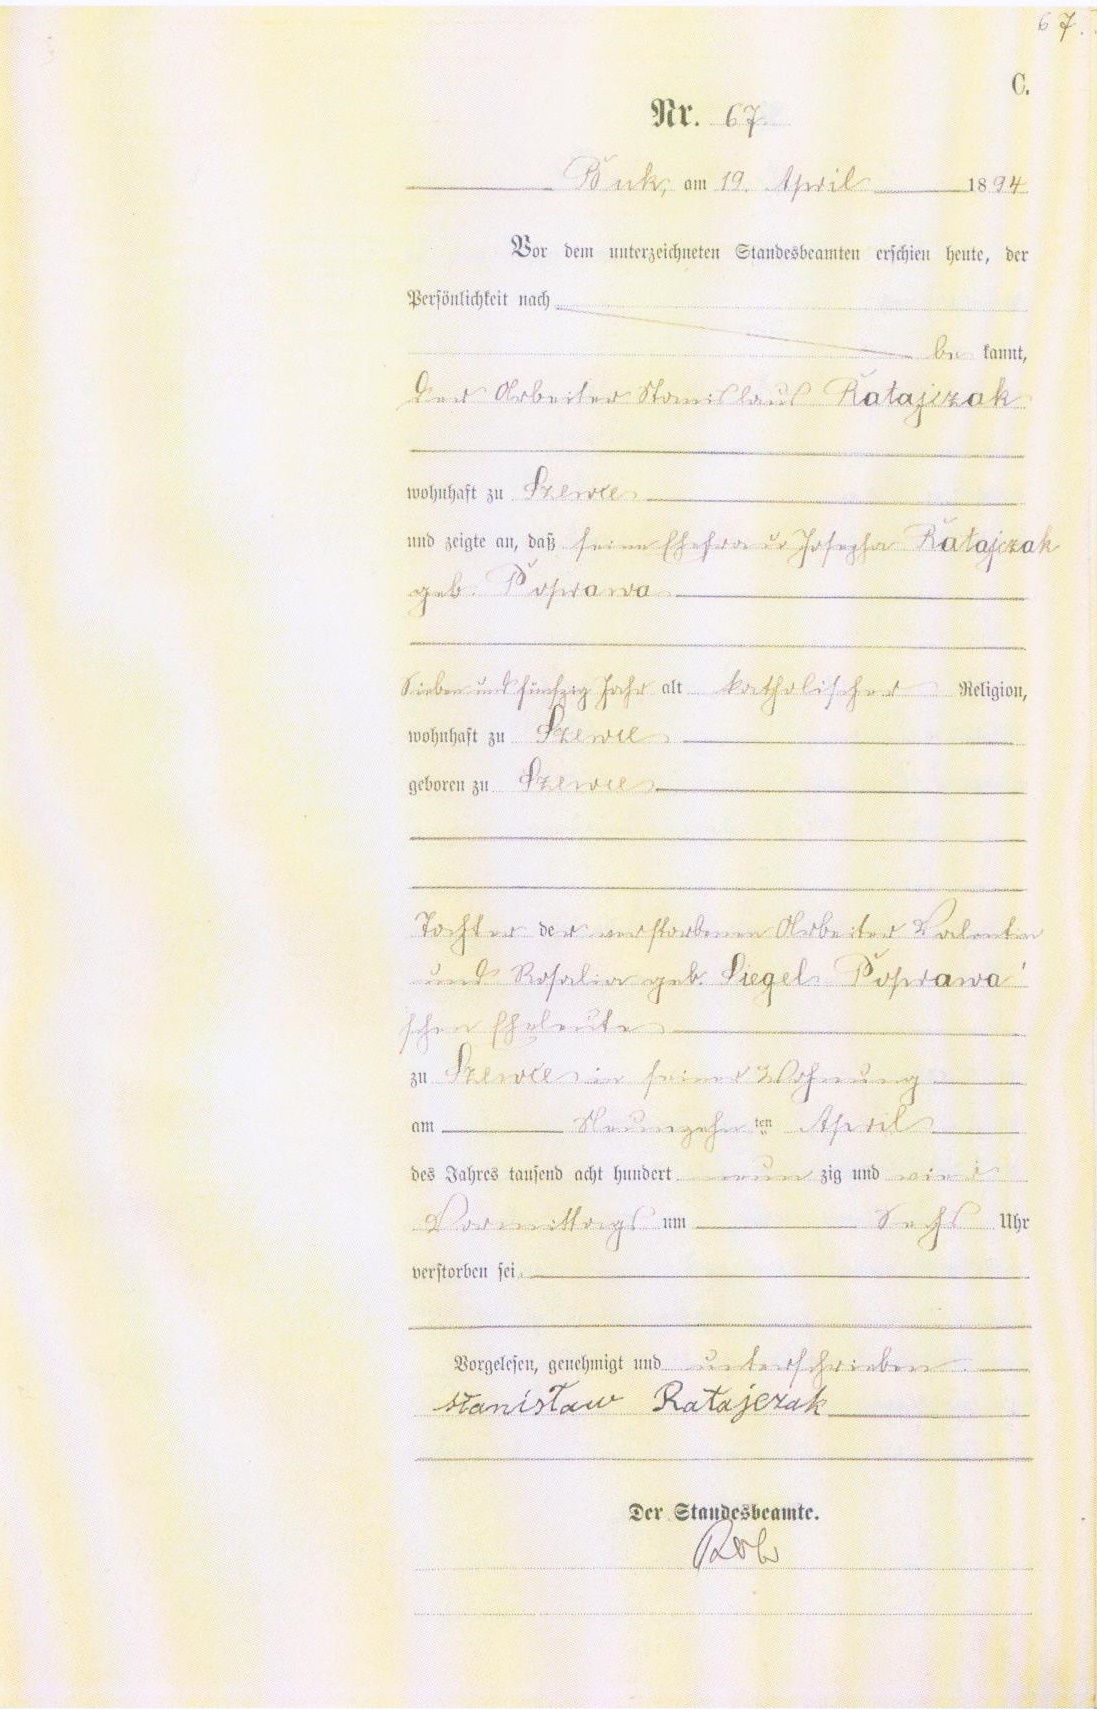 67.
C.
Nr. 67
Buk, am 19. April 1894
Vor dem unterzeichneten Standesbeamten erschien heute, der
Persönlichkeit nach
be kannt,
der Arbeiter Stanislaus Ratajczak
wohnhaft zu Szewce
und zeigte an, daß seine Ehefrau Josepha Ratajczak
geb. Poprawa
Sieben und fünfzig Jahr alt katholischer Religion,
wohnhaft zu Szewce
geboren zu Szewce
Tochter der verstorbenen Arbeiter Valentin
und Rosalia geb. Siegel Poprawa'
schen Eheleute
zu Szewce in seiner Wohnung
am Neunzehn ten April
des Jahres tausend acht hundert neun zig und vier
Vormittags um Sechs Uhr
verstorben sei.
Vorgelesen, genehmigt und unterschrieben.
Stanisław Ratajczak
Der Standesbeamte.